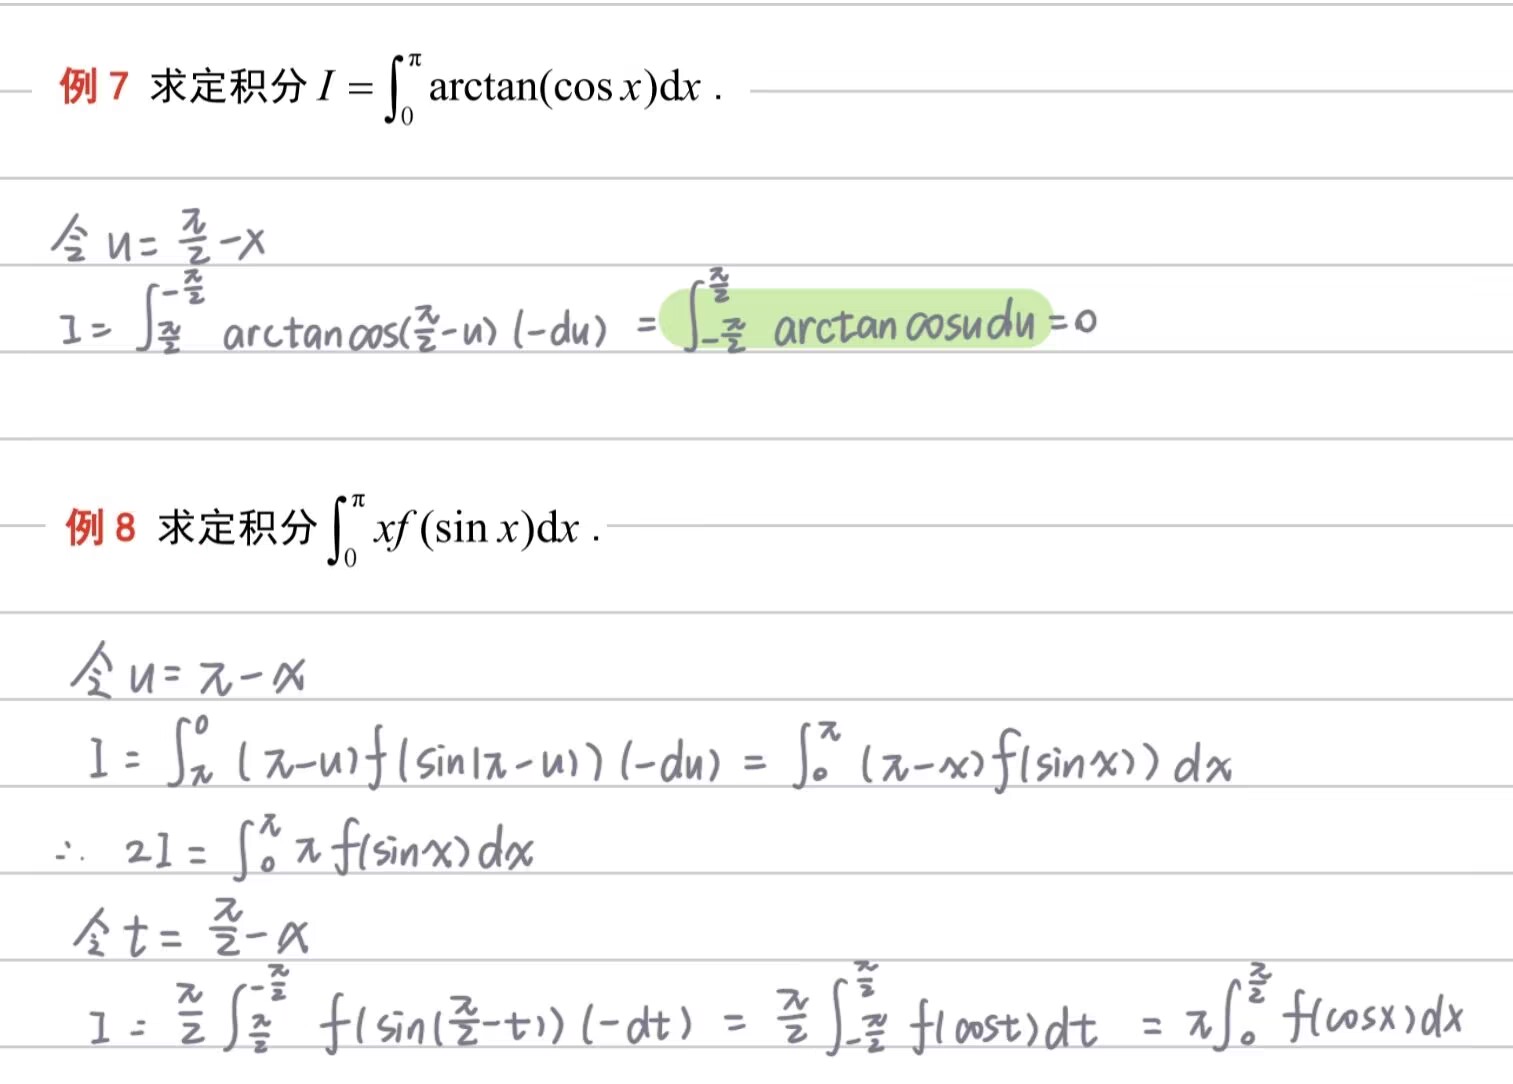 例 7 求定积分 $I=\int_{0}^{\pi}\arctan(\cos x)\mathrm{d}x$ .
令 $u=\frac{\pi}{2}-x$
$I=\int_{\frac{\pi}{2}}^{-\frac{\pi}{2}}\arctan\cos(\frac{\pi}{2}-u)(-du)=\int_{-\frac{\pi}{2}}^{\frac{\pi}{2}}\arctan\cos u\,du=0$
例 8 求定积分 $\int_{0}^{\pi}xf(\sin x)\mathrm{d}x$ .
令 $u=\pi-x$
$I=\int_{\pi}^{0}(\pi-u)f(\sin(\pi-u))(-du)=\int_{0}^{\pi}(\pi-x)f(\sin x))dx$
$\therefore\ 2I=\int_{0}^{\pi}\pi f(\sin x)dx$
令 $t=\frac{\pi}{2}-x$
$I=\frac{\pi}{2}\int_{\frac{\pi}{2}}^{-\frac{\pi}{2}}f(\sin(\frac{\pi}{2}-t))(-dt)=\frac{\pi}{2}\int_{-\frac{\pi}{2}}^{\frac{\pi}{2}}f(\cos t)dt=\pi\int_{0}^{\frac{\pi}{2}}f(\cos x)dx$